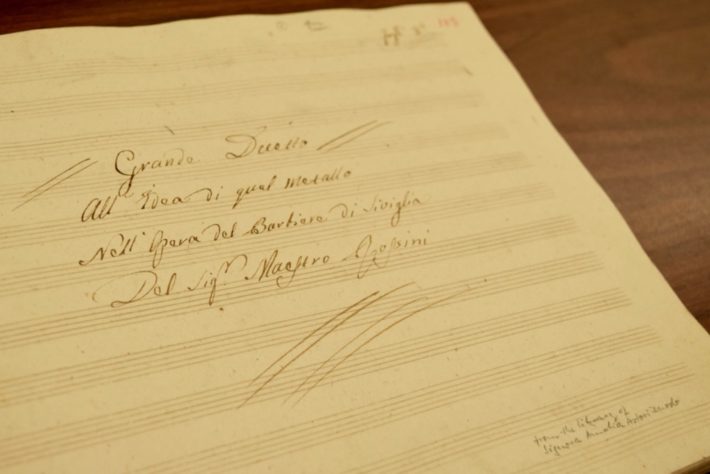 Grande Duetto
All' Idea di quel Metallo
Nell' Opera del Barbiere di Siviglia
Del Sig.r Maestro Rossini
from the library of
Signora Amalia